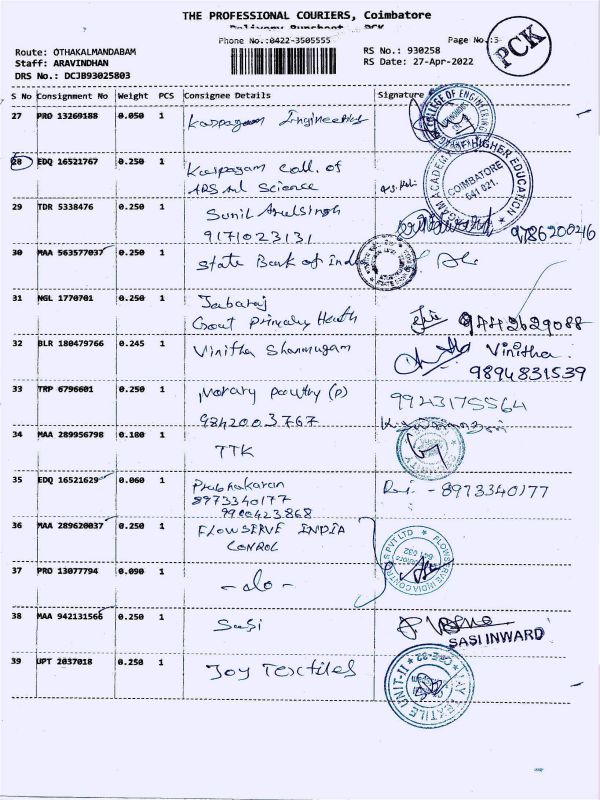 THE PROFESSIONAL COURIERS, Coimbatore
Delivery Runsheet - PCK
Phone No.:0422-3505555
Page No.:3
PCK
Route: OTHAKALMANDABAM
Staff: ARAVINDHAN
DRS No.: DCJB93025803
RS No.: 930258
RS Date: 27-Apr-2022
S No Consignment No Weight PCS Consignee Details Signature
27 PRO 13269188 0.050 1 Karpagam Engineering
COLLEGE OF ENGINEERING
28 EDQ 16521767 0.250 1 Karpagam Coll. of
ARS And Science
ACADEMY OF HIGHER EDUCATION
COIMBATORE
641 021.
29 TDR 5338476 0.250 1 Sunil Arulsingh
9171023131
9786200216
30 MAA 563577037 0.250 1 State Bank of India
31 NGL 1770701 0.250 1 Jabaraj
Govt Primary Health
9442629088
32 BLR 180479766 0.245 1 Vinitha Shanmugam
Vinitha.
9894831539
33 TRP 6796601 0.250 1 (P)
9842003767
9943175564
34 MAA 289956798 0.180 1 TTK
35 EDQ 16521629 0.060 1 Prabhakaran
8973340177
9900423868
- 8973340177
36 MAA 289620037 0.250 1 FLOWSERVE INDIA
CONROL
FLOWSERVE INDIA CONTROLS PVT LTD
641 032
37 PRO 13077794 0.090 1 - do -
38 MAA 942131566 0.250 1 Sasi
SASI INWARD
39 UPT 2037018 0.250 1 Joy Textiles
JAY TEXTILE UNIT-II
CBE-32